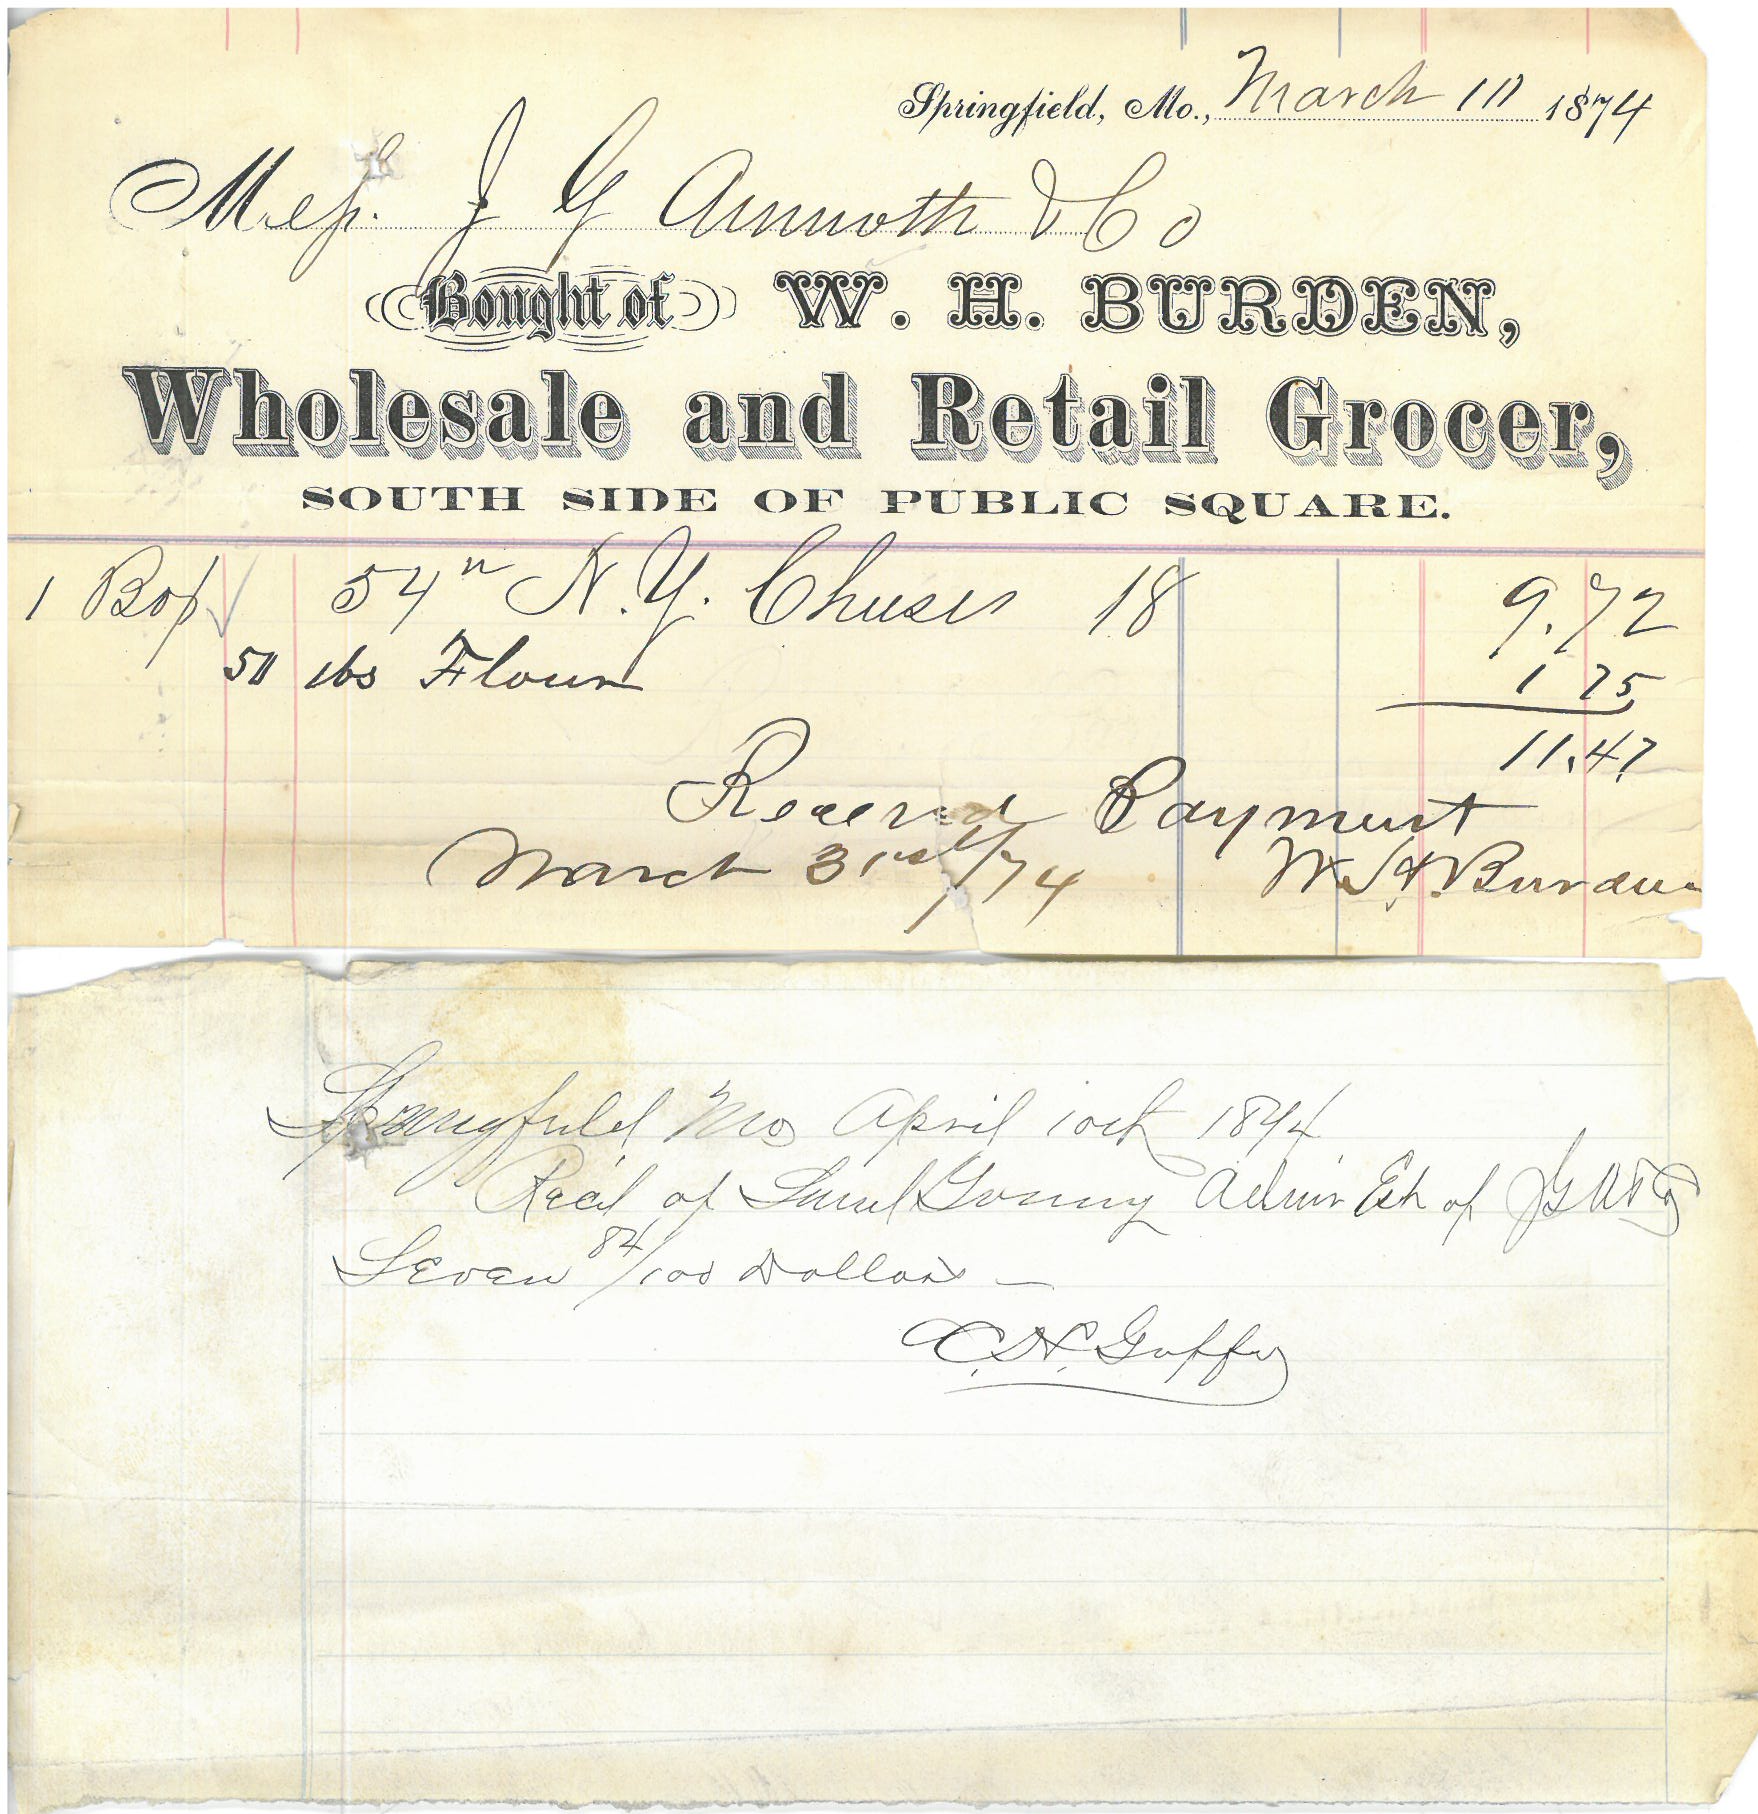 Springfield, Mo., March 10 1874
Mess. J G & Co
Bought of W. H. BURDEN,
Wholesale and Retail Grocer,
SOUTH SIDE OF PUBLIC SQUARE.
1 Box 54 N.Y. Cheese 18 9.72
50 lbs Flour 1 75
11.47
Received Payment
March 31st/74 W. H. Burden
Springfield Mo April 10th 1874
Recd of Admr Est of
Seven 84/100 Dollars